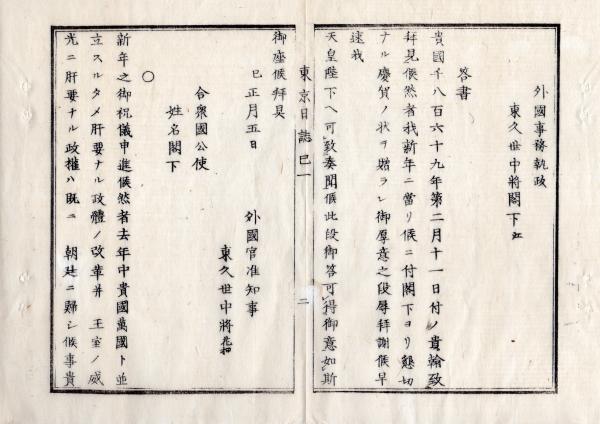 外國事務執政
東久世中將閣下ニ
答書
貴國千八百六十九年第二月十一日付ノ貴翰致
拜見候然者我新年ニ當リ候ニ付閣下ヨリ懇切
ナル慶賀ノ状ヲ贈ラレ御厚意之段辱拜謝候早
速我
天皇陛下ヘ可致奏聞候此段御答可得御意如斯
東京日誌 巳一
二
御座候拜具
巳正月五日
外國官准知事
東久世中將花押
合衆國公使
姓名閣下
〇
新年之御祝儀申進候然者去年中貴國萬國ト並
立スルタメ肝要ナル政體ノ改革并 王室ノ威
光ニ肝要ナル政權ハ既ニ 朝廷ニ歸シ候事貴